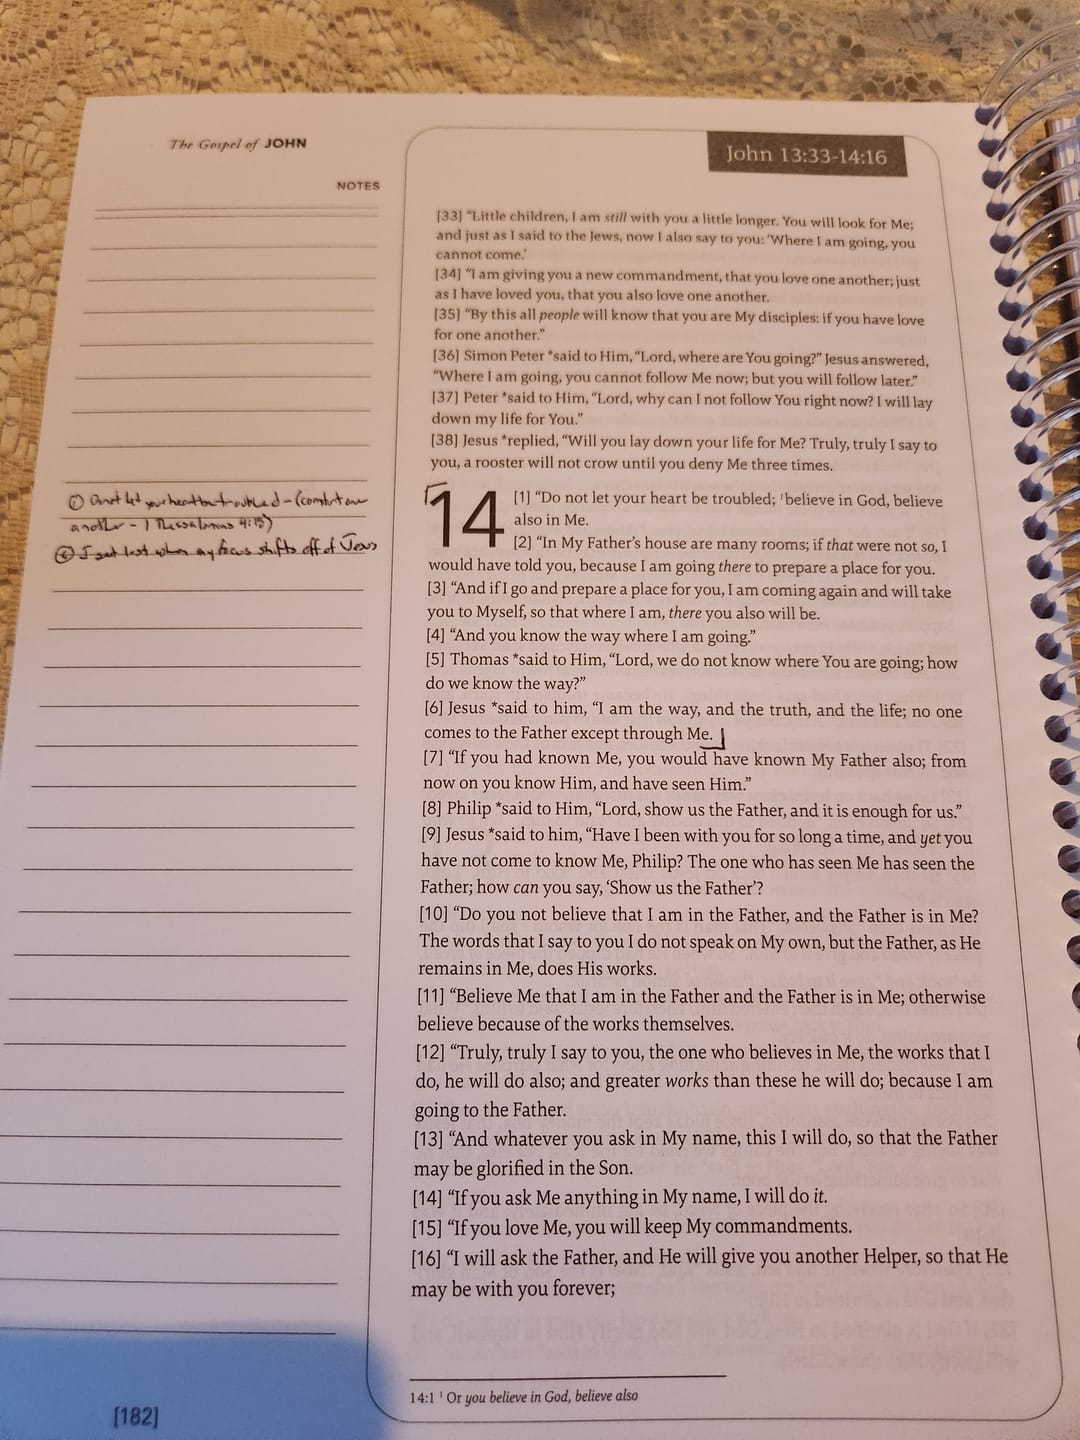 The Gospel of JOHN
NOTES
① Do not let your heart be troubled - (comfort one
another - 1 Thessalonians 4:18)
② I get lost when my focus shifts off of Jesus
[182]
John 13:33-14:16
[33] “Little children, I am still with you a little longer. You will look for Me;
and just as I said to the Jews, now I also say to you: ‘Where I am going, you
cannot come.’
[34] “I am giving you a new commandment, that you love one another; just
as I have loved you, that you also love one another.
[35] “By this all people will know that you are My disciples: if you have love
for one another.”
[36] Simon Peter *said to Him, “Lord, where are You going?” Jesus answered,
“Where I am going, you cannot follow Me now; but you will follow later.”
[37] Peter *said to Him, “Lord, why can I not follow You right now? I will lay
down my life for You.”
[38] Jesus *replied, “Will you lay down your life for Me? Truly, truly I say to
you, a rooster will not crow until you deny Me three times.
14 [1] “Do not let your heart be troubled; ¹believe in God, believe
also in Me.
[2] “In My Father’s house are many rooms; if that were not so, I
would have told you, because I am going there to prepare a place for you.
[3] “And if I go and prepare a place for you, I am coming again and will take
you to Myself, so that where I am, there you also will be.
[4] “And you know the way where I am going.”
[5] Thomas *said to Him, “Lord, we do not know where You are going; how
do we know the way?”
[6] Jesus *said to him, “I am the way, and the truth, and the life; no one
comes to the Father except through Me.
[7] “If you had known Me, you would have known My Father also; from
now on you know Him, and have seen Him.”
[8] Philip *said to Him, “Lord, show us the Father, and it is enough for us.”
[9] Jesus *said to him, “Have I been with you for so long a time, and yet you
have not come to know Me, Philip? The one who has seen Me has seen the
Father; how can you say, ‘Show us the Father’?
[10] “Do you not believe that I am in the Father, and the Father is in Me?
The words that I say to you I do not speak on My own, but the Father, as He
remains in Me, does His works.
[11] “Believe Me that I am in the Father and the Father is in Me; otherwise
believe because of the works themselves.
[12] “Truly, truly I say to you, the one who believes in Me, the works that I
do, he will do also; and greater works than these he will do; because I am
going to the Father.
[13] “And whatever you ask in My name, this I will do, so that the Father
may be glorified in the Son.
[14] “If you ask Me anything in My name, I will do it.
[15] “If you love Me, you will keep My commandments.
[16] “I will ask the Father, and He will give you another Helper, so that He
may be with you forever;
14:1 ¹ Or you believe in God, believe also